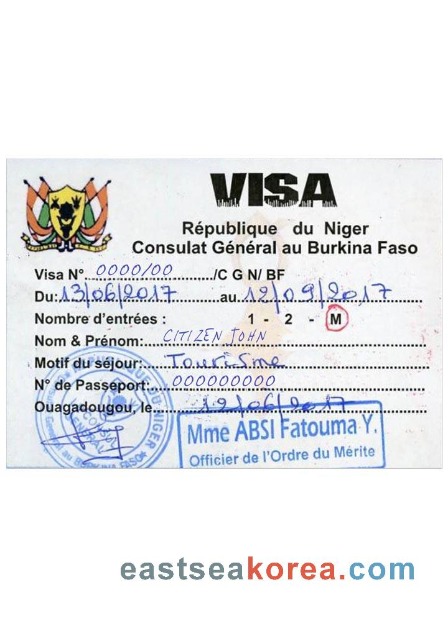 VISA
République du Niger
Consulat Général au Burkina Faso
Visa N° 0000/00 /C G N/ BF
Du: 13/06/2017 au 12/09/2017
Nombre d'entrées: 1 - 2 - M
Nom & Prénom: CITIZEN JOHN
Motif du séjour: Tourisme
N° de Passeport: 000000000
Ouagadougou, le 12/06/2017
Mme ABSI Fatouma Y.
Officier de l'Ordre du Mérite
eastseakorea.com